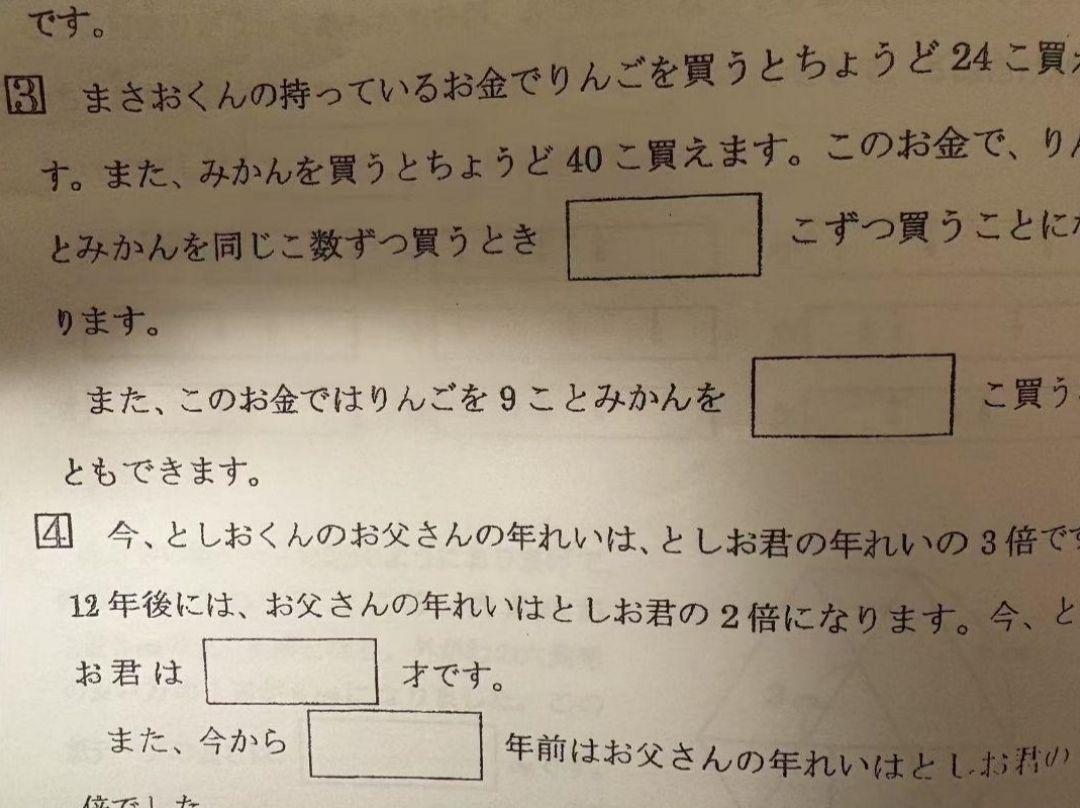 です。
3 まさおくんの持っているお金でりんごを買うとちょうど 24 こ買え
す。また、みかんを買うとちょうど 40 こ買えます。このお金で、りん
とみかんを同じこ数ずつ買うとき こずつ買うことにな
ります。
また、このお金ではりんごを 9 ことみかんを こ買うこ
ともできます。
4 今、としおくんのお父さんの年れいは、としお君の年れいの 3 倍です
12 年後には、お父さんの年れいはとしお君の 2 倍になります。今、と
お君は 才です。
また、今から 年前はお父さんの年れいはとしお君の
倍でした